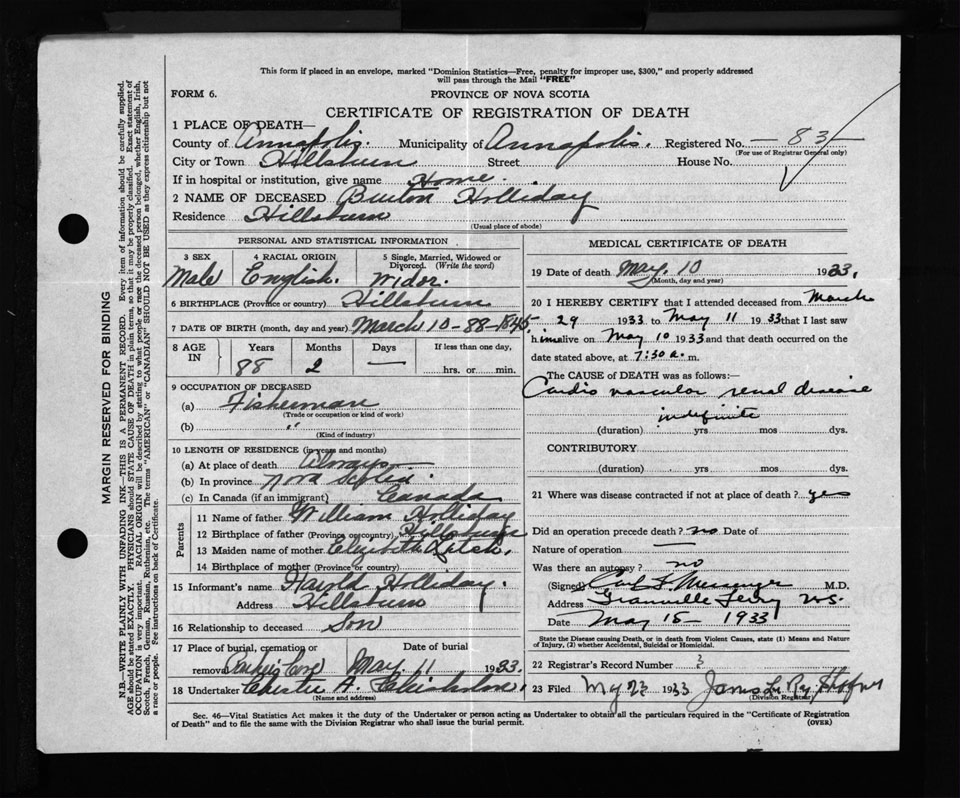 This form if placed in an envelope, marked "Dominion Statistics—Free, penalty for improper use, $300," and properly addressed
will pass through the Mail "FREE"
FORM 6.
PROVINCE OF NOVA SCOTIA
CERTIFICATE OF REGISTRATION OF DEATH
1 PLACE OF DEATH—
County of Annapolis. Municipality of Annapolis. Registered No. 83
(For use of Registrar General only)
City or Town Hillsburn Street House No.
If in hospital or institution, give name Home.
2 NAME OF DECEASED Burton Holliday
Residence Hillsburn
(Usual place of abode)
PERSONAL AND STATISTICAL INFORMATION
3 SEX 4 RACIAL ORIGIN 5 Single, Married, Widowed or
Divorced. (Write the word)
Male English. Wider.
6 BIRTHPLACE (Province or country) Hillsburn
7 DATE OF BIRTH (month, day and year) March 10-88-1845
8 AGE IN Years Months Days If less than one day,
88 2 — hrs. or min.
9 OCCUPATION OF DECEASED
(a) Fisherman
(Trade or occupation or kind of work)
(b) "
(Kind of industry)
10 LENGTH OF RESIDENCE (in years and months)
(a) At place of death Always
(b) In province Nova Scotia
(c) In Canada (if an immigrant) Canada
Parents
11 Name of father William Holliday
12 Birthplace of father (Province or country) Hillsburn
13 Maiden name of mother Elizabeth
14 Birthplace of mother (Province or country)
15 Informant's name Harold Holliday.
Address Hillsburn
16 Relationship to deceased Son
17 Place of burial, cremation or Date of burial
removal Parkers Cove May 11 1933.
18 Undertaker Chester A. Chisholm.
(Name and address)
MEDICAL CERTIFICATE OF DEATH
19 Date of death May. 10 1933.
(Month, day and year)
20 I HEREBY CERTIFY that I attended deceased from March
29 1933 to May 11 1933 that I last saw
him alive on May 10 1933 and that death occurred on the
date stated above, at 7:30 a. m.
The CAUSE OF DEATH was as follows:—
Cardio vascular renal disease
indefinite
(duration) yrs mos dys.
CONTRIBUTORY
(duration) yrs mos dys.
21 Where was disease contracted if not at place of death? yes
Did an operation precede death? no Date of
Nature of operation —
Was there an autopsy? no
(Signed) Carl F. Messenger M.D.
Address Granville Ferry N.S.
Date May 15- 1933
State the Disease causing Death, or in death from Violent Causes, state (1) Means and Nature
of Injury, (2) whether Accidental, Suicidal or Homicidal.
22 Registrar's Record Number 3
23 Filed 1933
(Division Registrar)
Sec. 46—Vital Statistics Act makes it the duty of the Undertaker or person acting as Undertaker to obtain all the particulars required in the "Certificate of Registration
of Death" and to file the same with the Division Registrar who shall issue the burial permit.
(OVER)
MARGIN RESERVED FOR BINDING
N.B.—WRITE PLAINLY WITH UNFADING INK—THIS IS A PERMANENT RECORD. Every item of information should be carefully supplied.
AGE should be stated EXACTLY. PHYSICIANS should STATE CAUSE OF DEATH in plain terms, so that it may be properly classified. Exact statement of
OCCUPATION is very important. RACIAL ORIGIN will be described by stating to what people or race the deceased person belonged, whether English, Irish,
Scotch, French, German, Russian, Ruthenian, etc. The terms "AMERICAN" or "CANADIAN" SHOULD NOT BE USED as they express citizenship but not
a race or people. See instructions on back of Certificate.